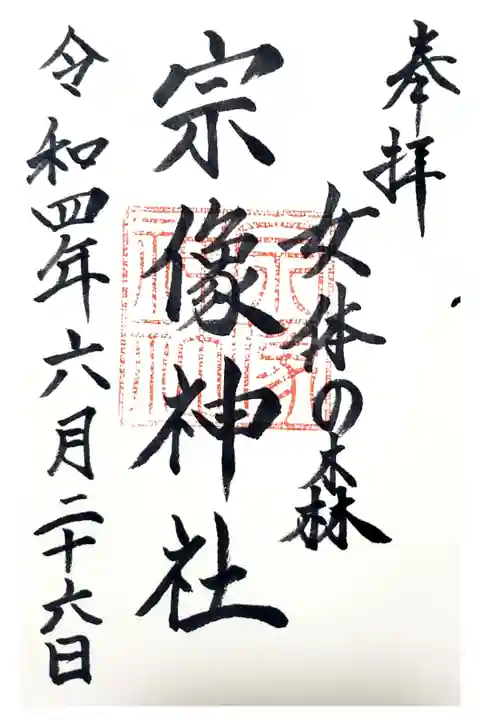 奉拝
女体の森
宗像神社
令和四年六月二十六日